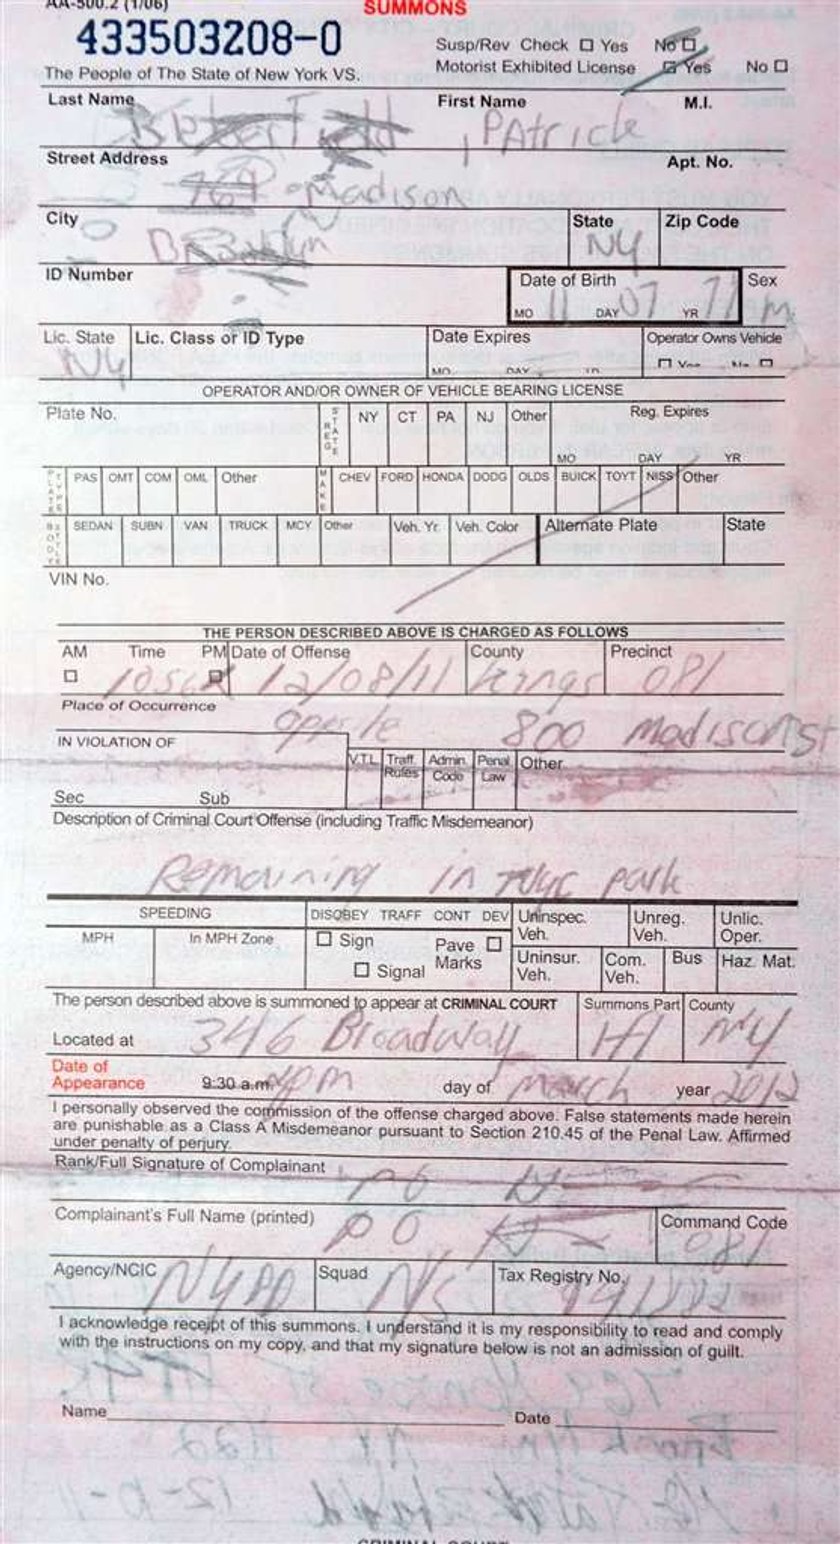 AA-500.2 (1/06)
SUMMONS
433503208-0
Susp/Rev Check Yes No
The People of The State of New York VS.
Motorist Exhibited License Yes No
Last Name First Name M.I.
PAtrick
Street Address Apt. No.
Madison
City State Zip Code
NY
ID Number Date of Birth Sex
MO 11 DAY 07 YR 71 M
Lic. State Lic. Class or ID Type Date Expires Operator Owns Vehicle
NY MO. DAY Yes No
OPERATOR AND/OR OWNER OF VEHICLE BEARING LICENSE
Plate No. REG STATE NY CT PA NJ Other Reg. Expires
MO DAY YR
PLATE TYPE PAS OMT COM OML Other MAKE CHEV FORD HONDA DODG OLDS BUICK TOYT NISS Other
BODY SEDAN SUBN VAN TRUCK MCY Other Veh. Yr. Veh. Color Alternate Plate State
VIN No.
THE PERSON DESCRIBED ABOVE IS CHARGED AS FOLLOWS
AM Time PM Date of Offense County Precinct
12/08/11 Kings 081
Place of Occurrence
800 Madison st
IN VIOLATION OF
V.T.L. Traff. Rules Admin. Code Penal Law Other
Sec Sub
Description of Criminal Court Offense (including Traffic Misdemeanor)
Remaining in park
SPEEDING DISOBEY TRAFF CONT DEV Uninspec. Veh. Unreg. Veh. Unlic. Oper.
MPH In MPH Zone Sign Pave Marks
Signal Uninsur. Veh. Com. Veh. Bus Haz. Mat.
The person described above is summoned to appear at CRIMINAL COURT Summons Part County
Located at 346 Broadway NY
Date of Appearance 9:30 a.m. day of March year 2012
I personally observed the commission of the offense charged above. False statements made herein
are punishable as a Class A Misdemeanor pursuant to Section 210.45 of the Penal Law. Affirmed
under penalty of perjury.
Rank/Full Signature of Complainant
Complainant's Full Name (printed) Command Code
PO 081
Agency/NCIC Squad Tax Registry No.
NYPD
I acknowledge receipt of this summons. I understand it is my responsibility to read and comply
with the instructions on my copy, and that my signature below is not an admission of guilt.
Name Date
CRIMINAL COURT